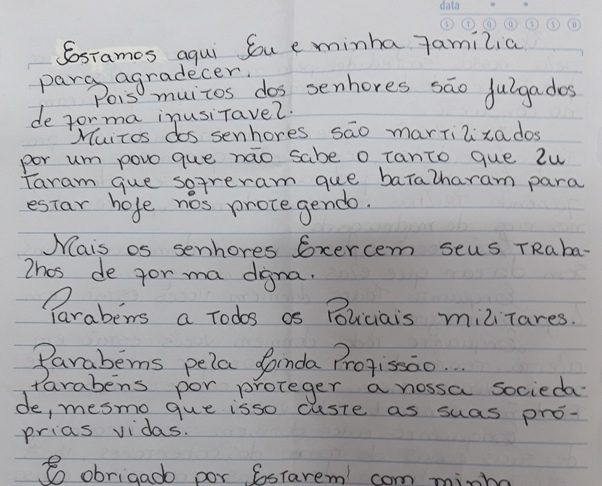 data
S T Q Q S S D
Estamos aqui Eu e minha família
para agradecer.
Pois muitos dos senhores são julgados
de forma inusitavel.
Muitos dos senhores são martilizados
por um povo que não sabe o tanto que lu
taram que sofreram que batalharam para
estar hoje nós protegendo.
Mais os senhores Exercem seus Traba-
lhos de forma digna.
Parabéms a Todos os Policiais militares.
Parabéms pela Linda Profissão...
Parabéns por proteger a nossa socieda-
de, mesmo que isso custe as suas pró-
prias vidas.
E obrigado por Estarem com minha